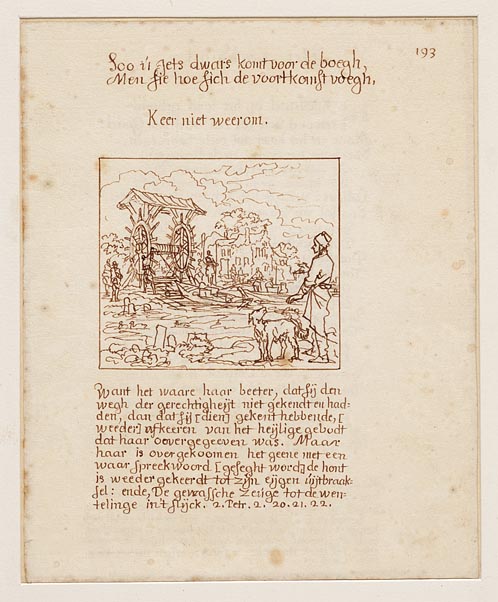 193
Soo u iets dwars komt voor de boegh,
Men sie hoe sich de voortkomst voegh,
Keer niet weerom.
Want het waare haar beeter, dat sij den
wegh der gerechtigheijt niet gekendt en had-
den, dan dat sij [dien] gekent hebbende, [
weeder] afkeeren van het heijlige gebodt
dat haar overgegeeven was. Maar
haar is overgekoomen het geene met een
waar spreekwoord [geseght wordt] de hont
is weedergekeerdt tot zijn eijgen uijtbraak-
sel: ende, De gewassche Zeuge tot de wen-
telinge in't slijck. 2. Petr. 2. 20. 21. 22.